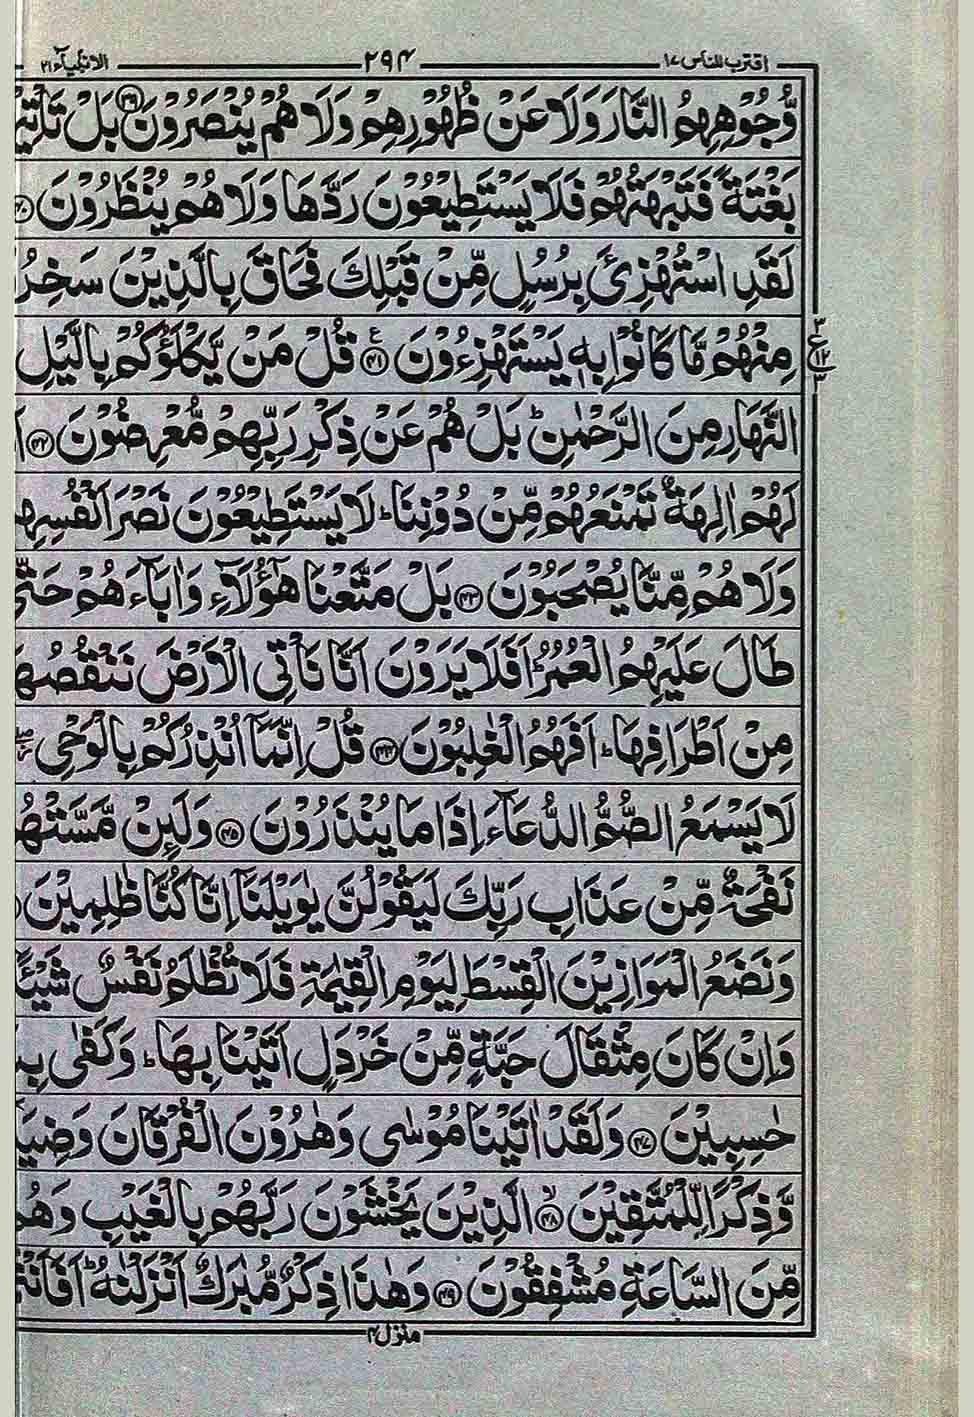 اقترب للناس ۱۷ ۲۹۴ الانبیآء ۲۱
وُّجُوْهِهِمُ النَّارَ وَلَا عَنْ ظُهُوْرِهِمْ وَلَا هُمْ يُنْصَرُوْنَ ﴿۳۹﴾ بَلْ
بَغْتَةً فَتَبْهَتُهُمْ فَلَا يَسْتَطِيْعُوْنَ رَدَّهَا وَلَا هُمْ يُنْظَرُوْنَ ﴿۴۰﴾
لَقَدِ اسْتُهْزِئَ بِرُسُلٍ مِّنْ قَبْلِكَ فَحَاقَ بِالَّذِيْنَ
مِنْهُمْ مَّا كَانُوْا بِهٖ يَسْتَهْزِءُوْنَ ﴿۴۱﴾ قُلْ مَنْ يَّكْلَؤُكُمْ بِالَّيْلِ
النَّهَارِ مِنَ الرَّحْمٰنِ ؕ بَلْ هُمْ عَنْ ذِكْرِ رَبِّهِمْ مُّعْرِضُوْنَ ﴿۴۲﴾
لَهُمْ اٰلِهَةٌ تَمْنَعُهُمْ مِّنْ دُوْنِنَا ؕ لَا يَسْتَطِيْعُوْنَ نَصْرَ
وَلَا هُمْ مِّنَّا يُصْحَبُوْنَ ﴿۴۳﴾ بَلْ مَتَّعْنَا هٰٓؤُلَآءِ وَاٰبَآءَهُمْ حَتّٰى
طَالَ عَلَيْهِمُ الْعُمُرُ ؕ اَفَلَا يَرَوْنَ اَنَّا نَاْتِى الْاَرْضَ
مِنْ اَطْرَافِهَا ؕ اَفَهُمُ الْغٰلِبُوْنَ ﴿۴۴﴾ قُلْ اِنَّمَاۤ اُنْذِرُكُمْ بِالْوَحْىِ
لَا يَسْمَعُ الصُّمُّ الدُّعَآءَ اِذَا مَا يُنْذَرُوْنَ ﴿۴۵﴾ وَلَئِنْ
نَفْحَةٌ مِّنْ عَذَابِ رَبِّكَ لَيَقُوْلُنَّ يٰوَيْلَنَاۤ اِنَّا كُنَّا ظٰلِمِيْنَ
وَنَضَعُ الْمَوَازِيْنَ الْقِسْطَ لِيَوْمِ الْقِيٰمَةِ فَلَا تُظْلَمُ نَفْسٌ
وَاِنْ كَانَ مِثْقَالَ حَبَّةٍ مِّنْ خَرْدَلٍ اَتَيْنَا بِهَا ؕ وَكَفٰى
حٰسِبِيْنَ ﴿۴۷﴾ وَلَقَدْ اٰتَيْنَا مُوْسٰى وَهٰرُوْنَ الْفُرْقَانَ
وَّذِكْرًا لِّلْمُتَّقِيْنَ ﴿۴۸﴾ الَّذِيْنَ يَخْشَوْنَ رَبَّهُمْ بِالْغَيْبِ
مِّنَ السَّاعَةِ مُشْفِقُوْنَ ﴿۴۹﴾ وَهٰذَا ذِكْرٌ مُّبٰرَكٌ اَنْزَلْنٰهُ ؕ
منزل ۴